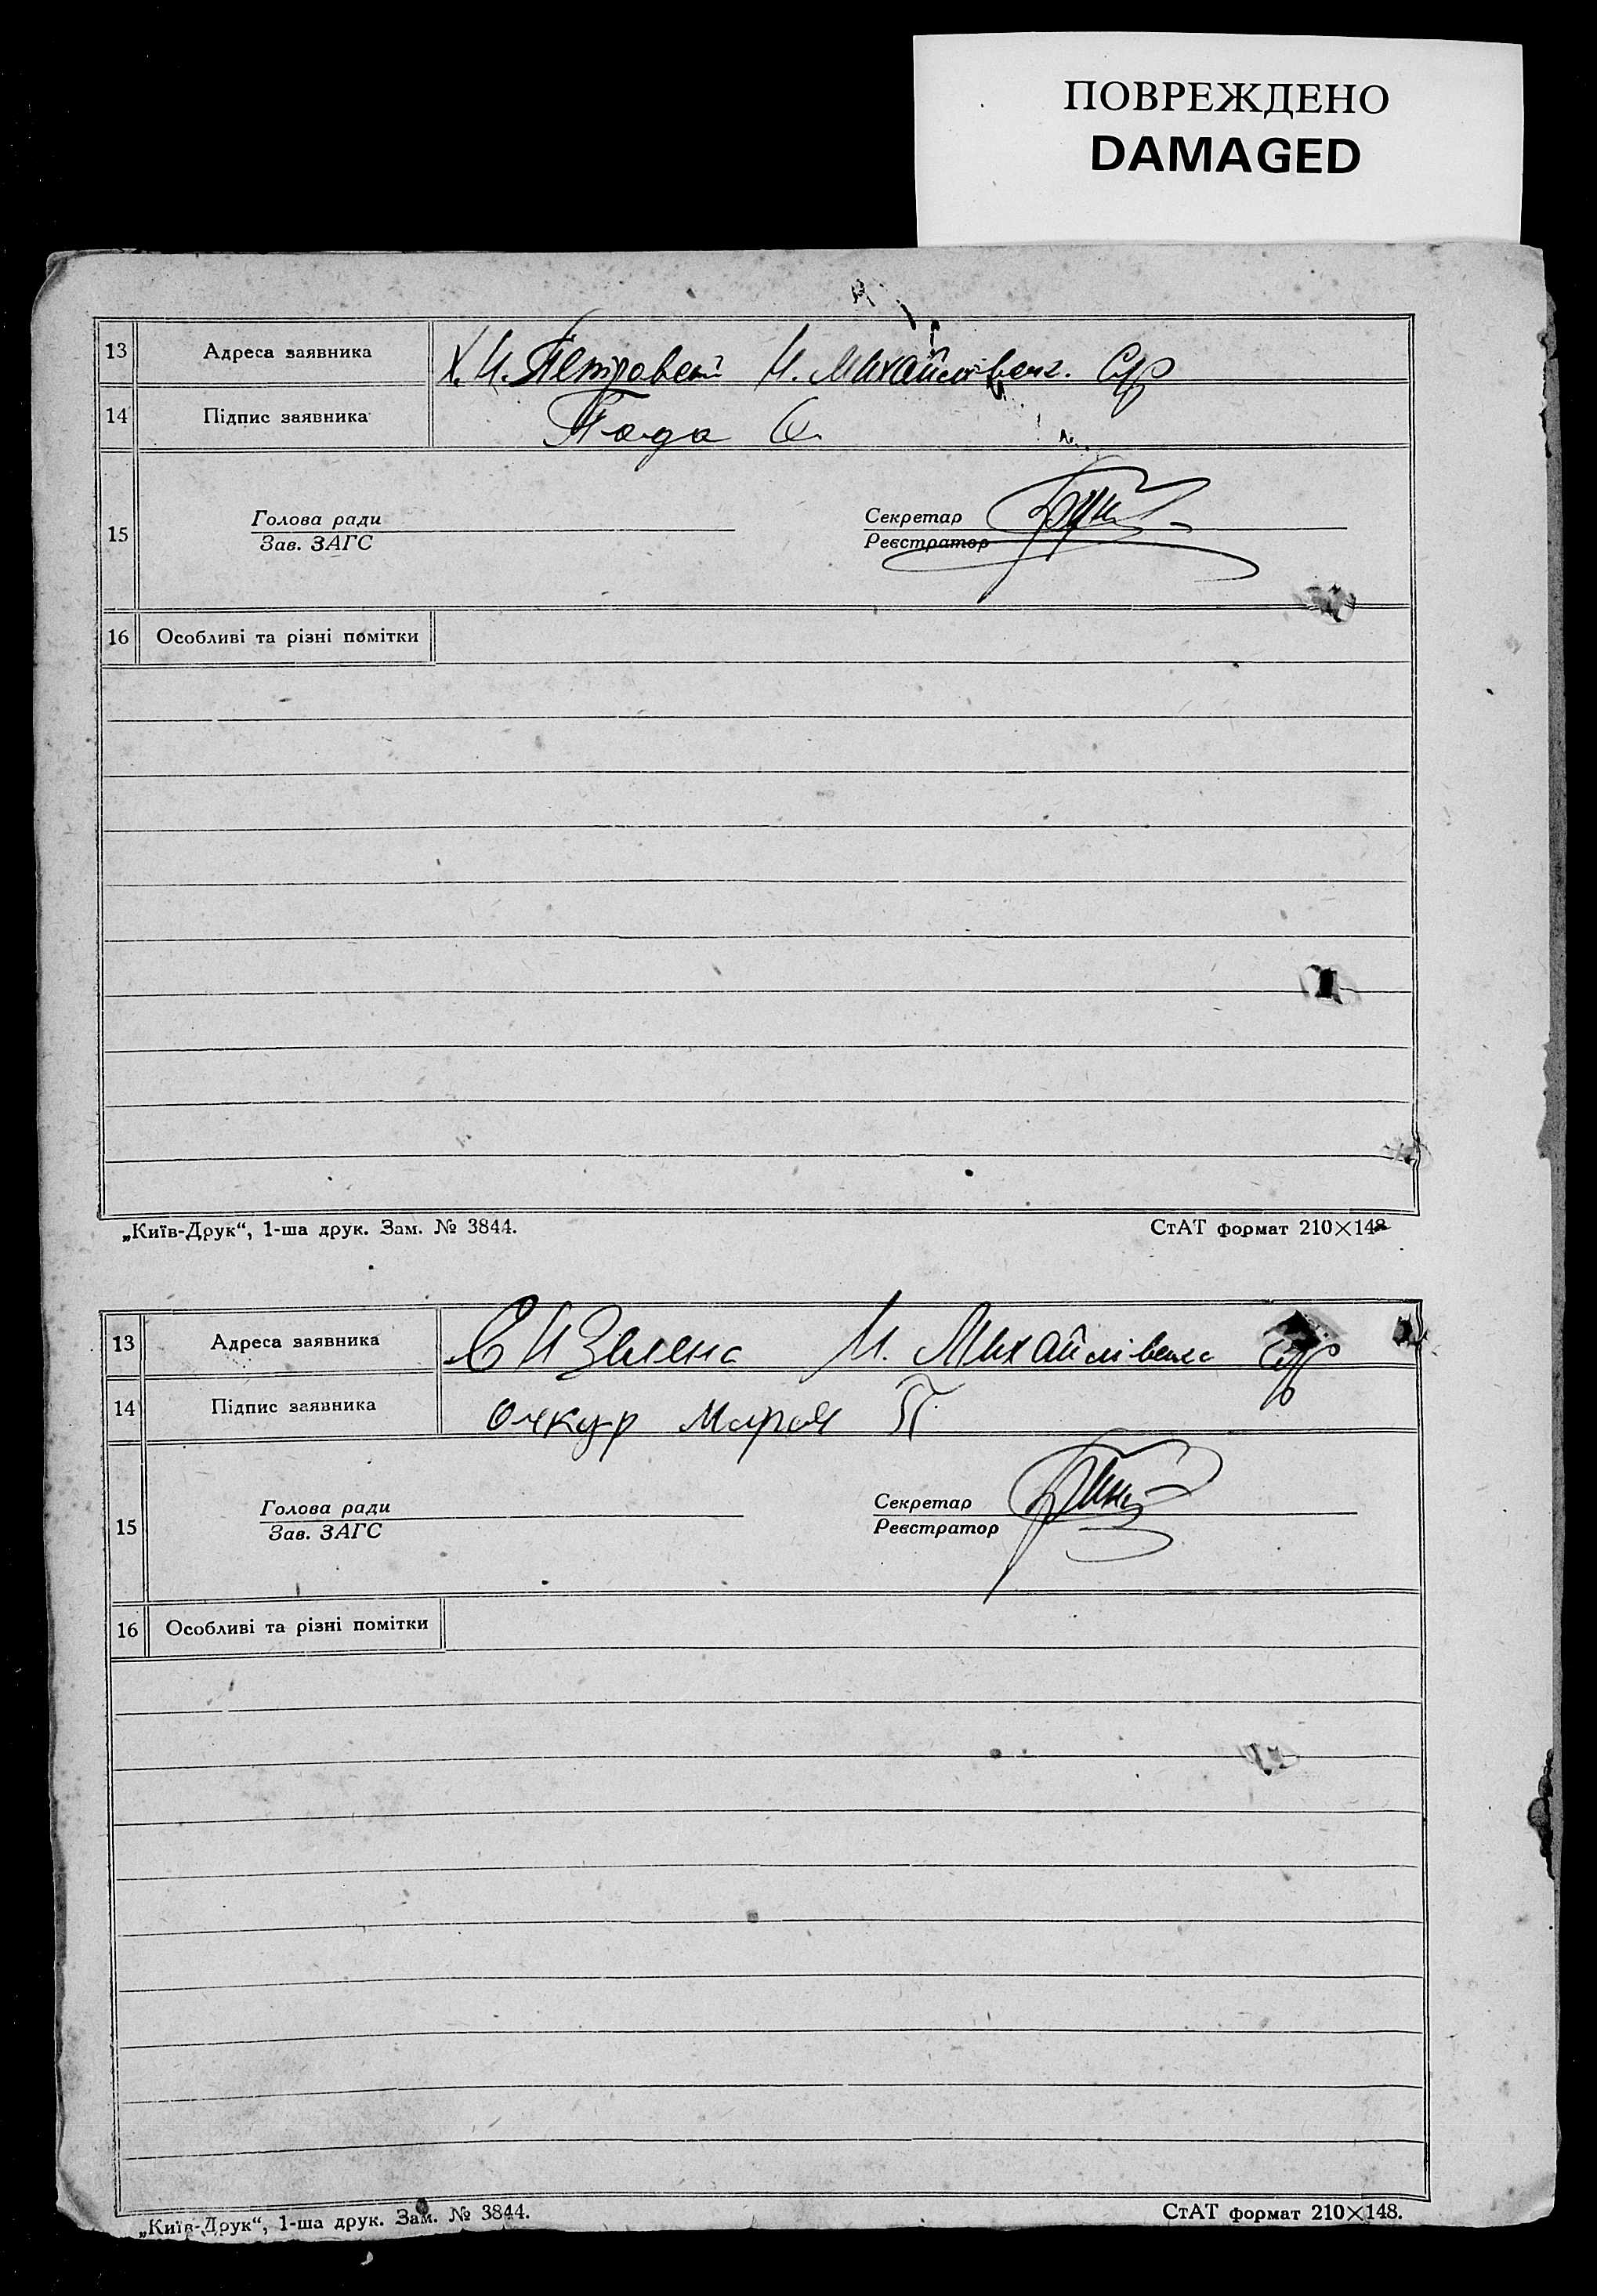 ПОВРЕЖДЕНО
DAMAGED
13 Адреса заявника Х. Н. Петровскі Н. Михайлівськ. С/р
14 Підпис заявника Пода О.
15 Голова ради
Зав. ЗАГС
Секретар
Реєстратор
16 Особливі та різні помітки
„Київ-Друк“, 1-ша друк. Зам. № 3844. СтАТ формат 210×148
13 Адреса заявника Зелена Н. Михайлівська С/р
14 Підпис заявника Очкур Мария П.
15 Голова ради
Зав. ЗАГС
Секретар
Реєстратор
16 Особливі та різні помітки
„Київ-Друк“, 1-ша друк. Зам. № 3844. СтАТ формат 210×148.